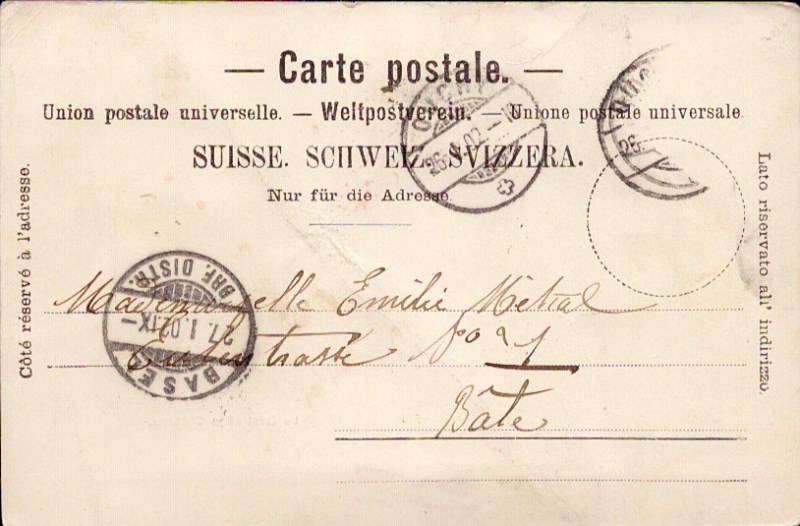 — Carte postale. —
Union postale universelle. — Weltpostverein. — Unione postale universale.
SUISSE. SCHWEIZ. SVIZZERA.
Nur für die Adresse.
Côté réservé à l'adresse.
Lato riservato all' indirizzo.
OUCHY
26. I. 02. –
26.
BASEL
BRF. DISTR.
27. 1. 02. IX –
Mademoiselle Emilie Métral
No 1
Bâle